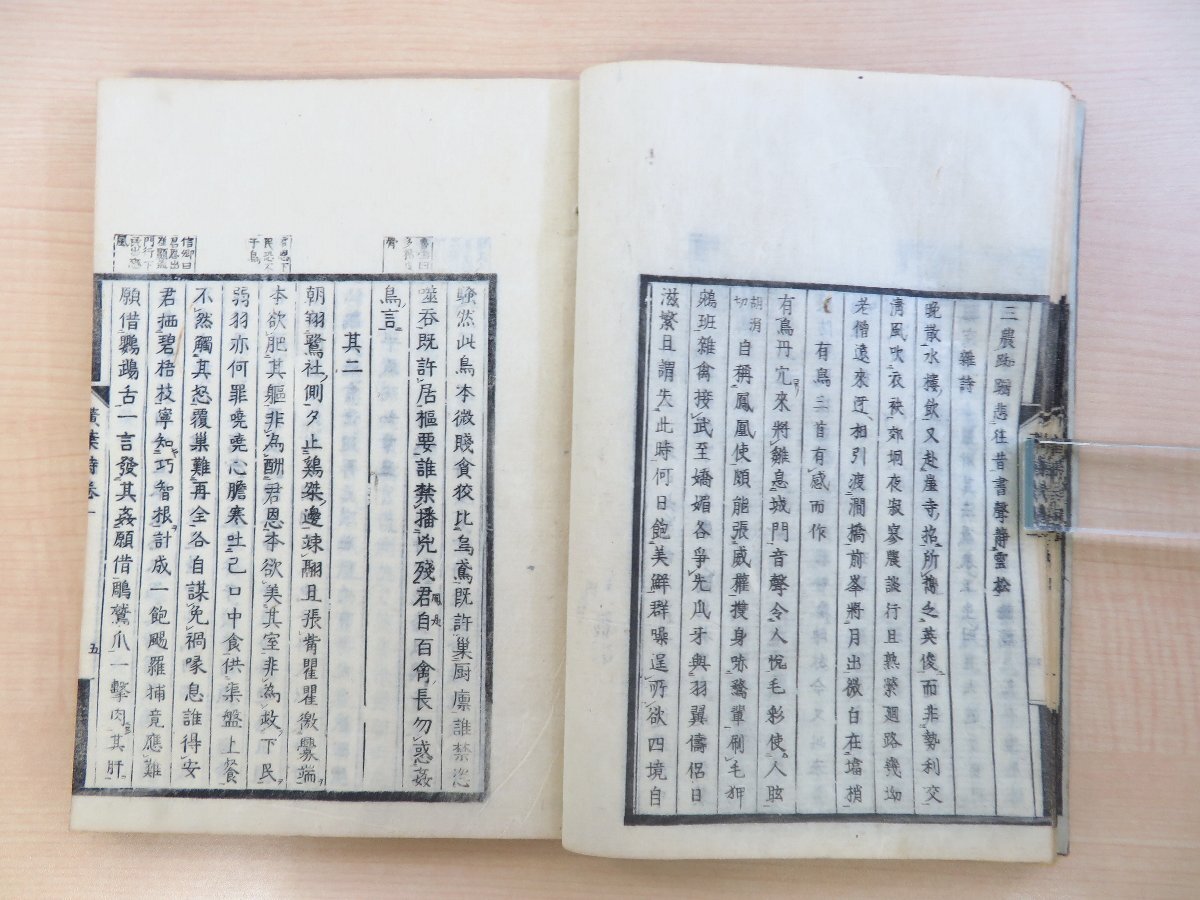 三農
悲往昔書聲靜雲松
雜詩
晚散水樓飲又赴崖寺招所攜之英俊而非勢利交
清風吹衣袂郊坰夜寂寥農談行且熟縈迴路幾坳
老僧遠來迓相引渡澗橋前峯將月出微白在塔梢
有鳥二首有感而作
有鳥丹穴來將雛息城門音聲令人悅毛彩使人眩
自稱鳳凰使頗能張威權搜身味鶩鞏刷毛狎
鵷班雜禽接武至嬌媚各爭先爪牙與羽翼儔侶日
滋繁且謂失此時何日飽美鮮群噪逞所欲四境自
騷然此鳥本微賤貪狡比烏鳶既許巢厨廪誰禁恣
噬吞既許居樞要誰禁播兇殘君自百禽長勿惑姦
鳥言
其二
朝翔鷲社側夕止鷄桀邊竦翮且張觜瞿瞿徼釁端
本欲肥其軀非為酬君恩本欲美其室非為政下民
弱羽亦何罪嘵嘵心膽寒吐己口中食供渠盤上餐
不然觸其怒覆巢難再全各自謀免禍喙息誰得安
君栖碧梧枝寧知巧智根計成一飽颺羅捕竟應難
願借鸚鵡舌一言發其姦願借鵰鷲爪一擊肉其肝
黃葉詩卷一
五